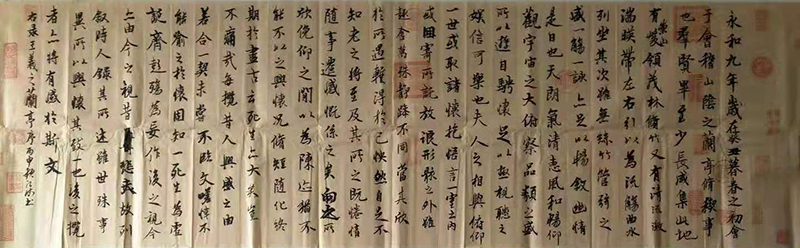 永和九年歲在癸丑暮春之初會
于會稽山陰之蘭亭脩稧事
也羣賢畢至少長咸集此地
有崇山峻領茂林脩竹又有清流激
湍暎帶左右引以為流觴曲水
列坐其次雖無絲竹管弦之
盛一觴一詠亦足以暢敘幽情
是日也天朗氣清惠風和暢仰
觀宇宙之大俯察品類之盛
所以遊目騁懷足以極視聽之
娛信可樂也夫人之相與俯仰
一世或取諸懷抱悟言一室之內
或因寄所託放浪形骸之外雖
趣舍萬殊靜躁不同當其欣
於所遇暫得於己怏然自足不
知老之將至及其所之既惓情
隨事遷感慨係之矣向之所
欣俛仰之閒以為陳迹猶不
能不以之興懷況脩短隨化終
期於盡古人云死生亦大矣豈
不痛哉每攬昔人興感之由
若合一契未嘗不臨文嗟悼不
能喻之於懷固知一死生為虛
誕齊彭殤為妄作後之視今
亦由今之視昔悲夫故列
敘時人錄其所述雖世殊事
異所以興懷其致一也後之攬
者亦將有感於斯文
右录王羲之蘭亭序丙申秋